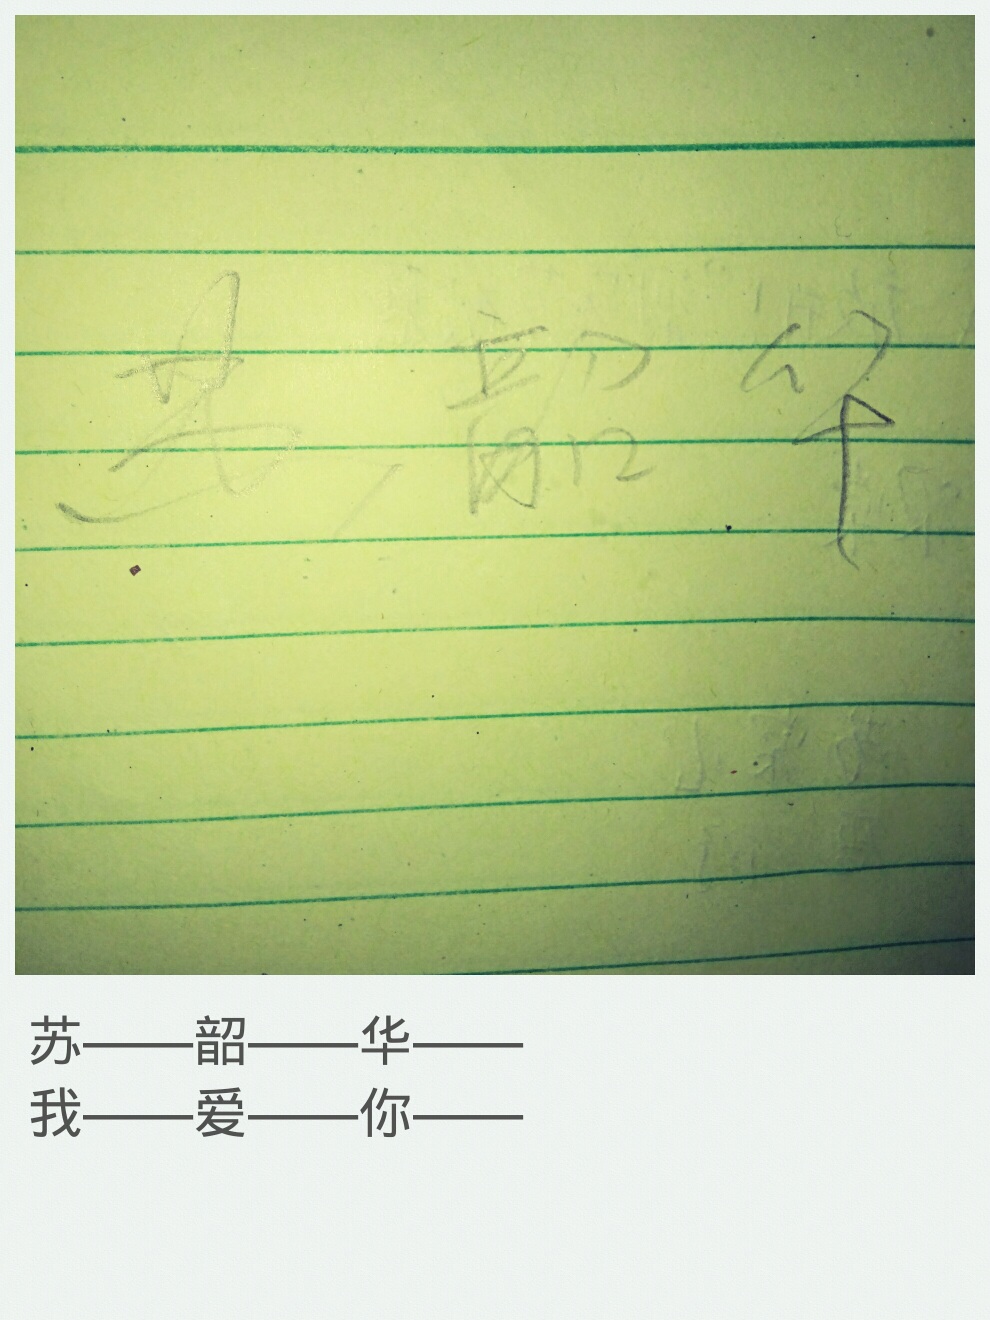 苏韶华
苏——韶——华——
我——爱——你——